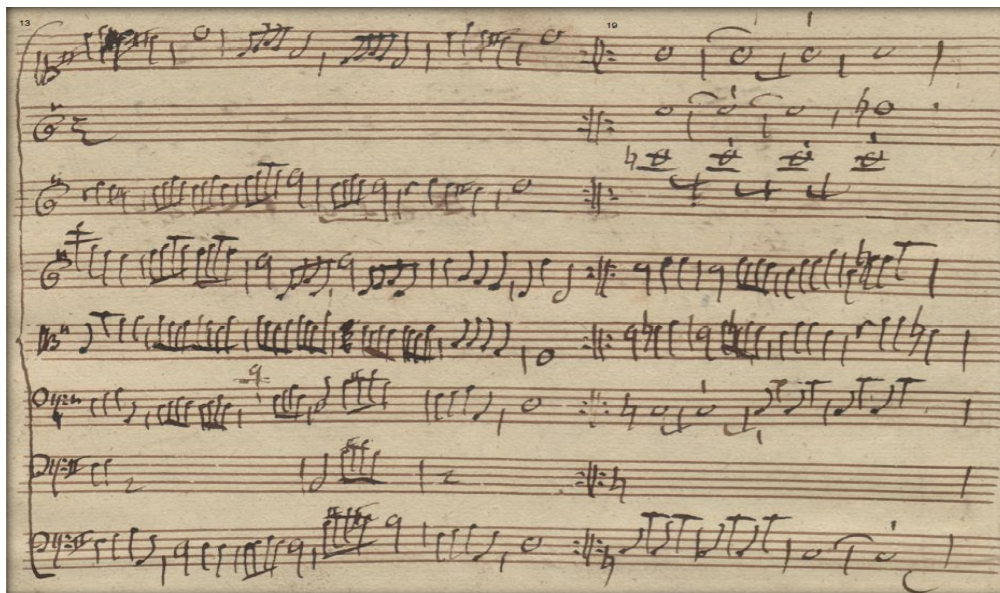 13 19